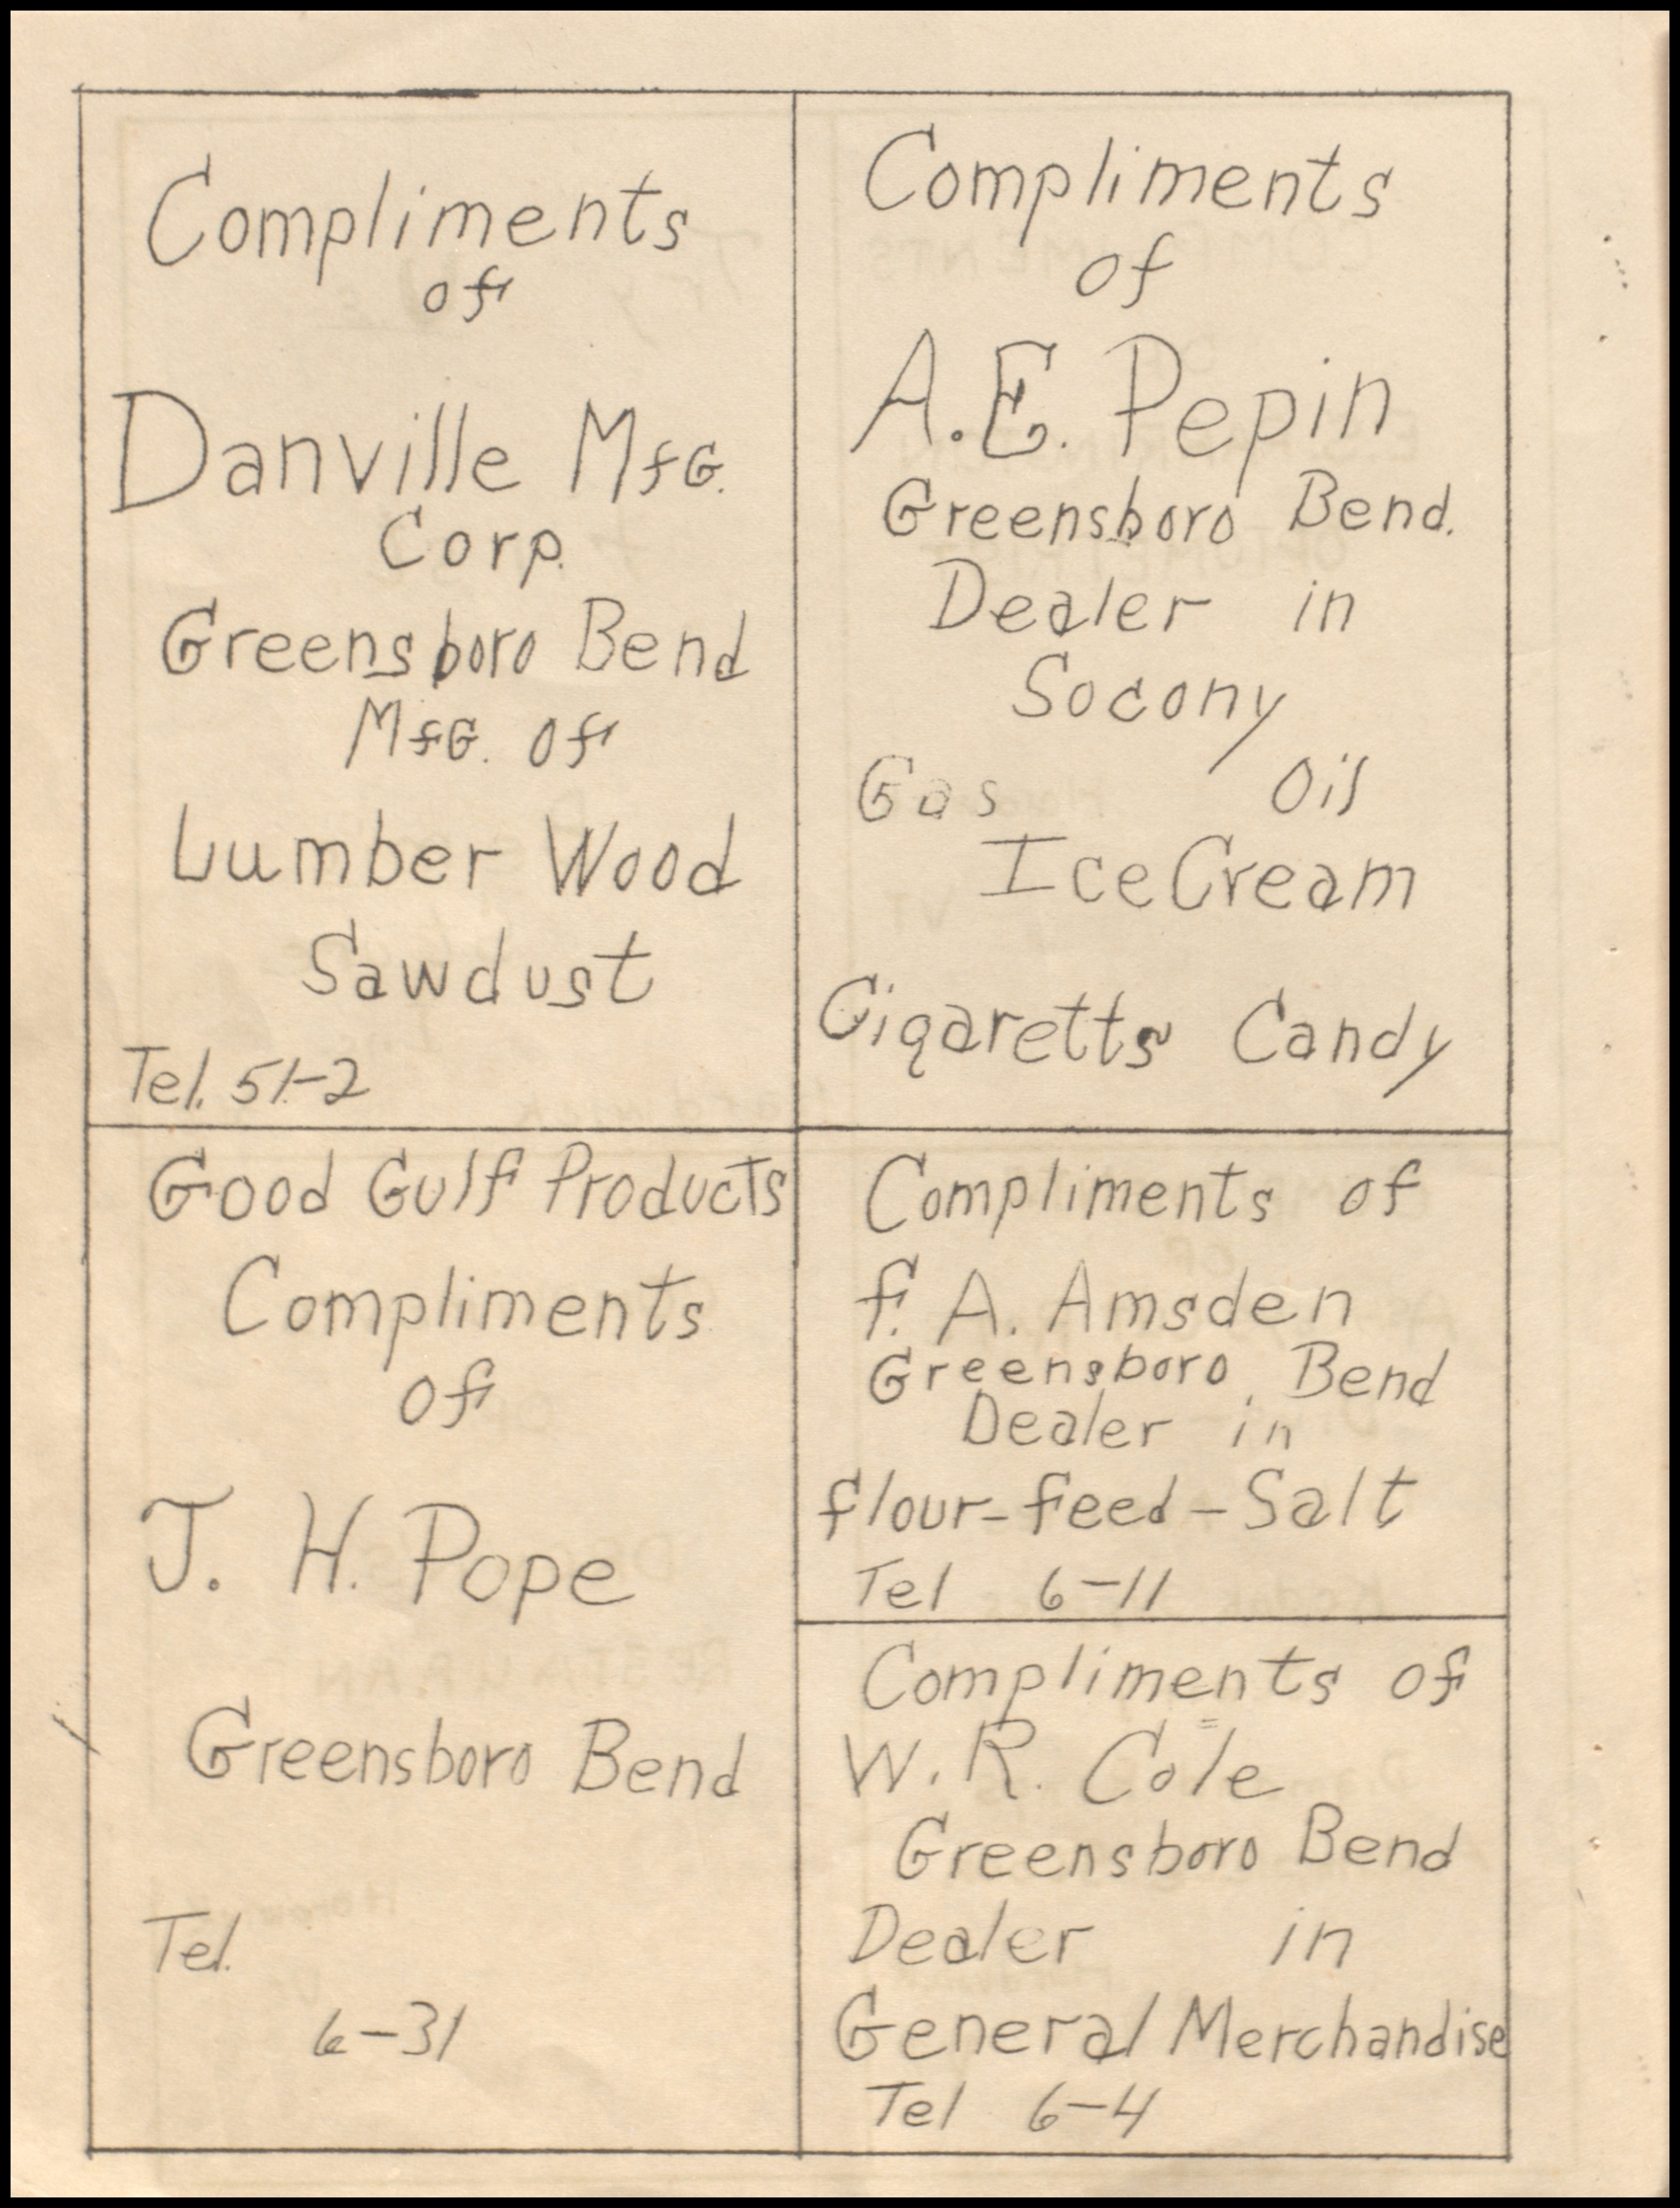 Compliments
of
Danville MfG.
Corp.
Greensboro Bend
MfG. Of
Lumber Wood
Sawdust
Tel. 51-2
Compliments
of
A.E. Pepin
Greensboro Bend.
Dealer in
Socony
Gas Oil
Ice Cream
Cigaretts Candy
Good Gulf Products
Compliments
Of
J. H. Pope
Greensboro Bend
Tel.
6-31
Compliments of
F. A. Amsden
Greensboro Bend
Dealer in
flour-feed-Salt
Tel 6-11
Compliments of
W. R. Cole
Greensboro Bend
Dealer in
General Merchandise
Tel 6-4